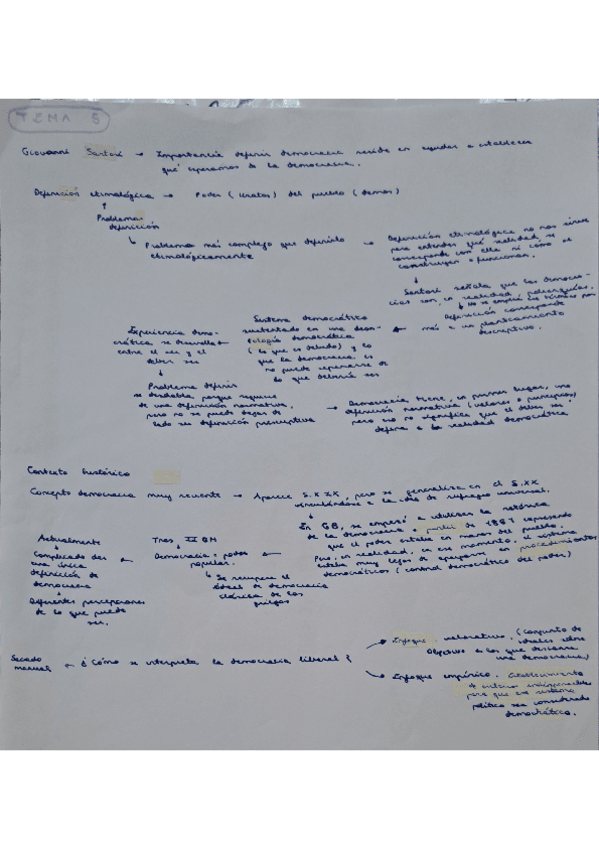 TEMA 5
Giovanni Sartori → Importancia definir democracia reside en ayudar a establecer
qué esperamos de la democracia.
Definición etimológica → Poder (kratos) del pueblo (demos)
Problema
definición
Problema más complejo que definirlo
etimológicamente
→ Definición etimológica no nos sirve
para entender qué realidad se
corresponde con ella ni cómo se
construyen o funcionan.
Sartori señala que las democra-
cias son, en realidad, poliarquías.
Definición corresponde
más a un planteamiento
descriptivo.
Sistema democrático
sustentado en una deon-
tología democrática
(lo que es debido) y lo
que la democracia es
no puede separarse de
lo que debería ser
Experiencia demo-
crática se desarrolla
entre el ser y el
deber ser
Problema definir
se desdobla porque requiere
de una definición normativa,
pero no se puede dejar de
lado su definición prescriptiva
→ Democracia tiene, en primer lugar, una
definición normativa (valores o principios)
pero eso no significa que el deber ser
defina a la realidad democrática
Contexto histórico
Concepto democracia muy reciente → Aparece S.XIX, pero se generaliza en el S.XX
vinculándose a la idea de sufragio universal.
En GB, se empezó a utilizar la retórica
de la democracia a partir de 1884 expresando
que el poder estaba en manos del pueblo.
Pero, en realidad, en ese momento, el sistema
estaba muy lejos de apoyarse en procedimientos
democráticos (control democrático del poder)
Tras II GM
Democracia = poder
popular.
Se recupera el
ideal de democracia
clásica de los
griegos
Actualmente
Complicado dar
una única
definición de
democracia
Diferentes percepciones
de lo que puede
ser.
Sacado
manual ← ¿Cómo se interpreta la democracia liberal?
Enfoque valorativo. (Conjunto de
ideales sobre
objetivos a los que debería
una democracia)
Enfoque empírico. Establecimiento
de criterios indispensables
para que ese sistema
político sea considerado
democrático.